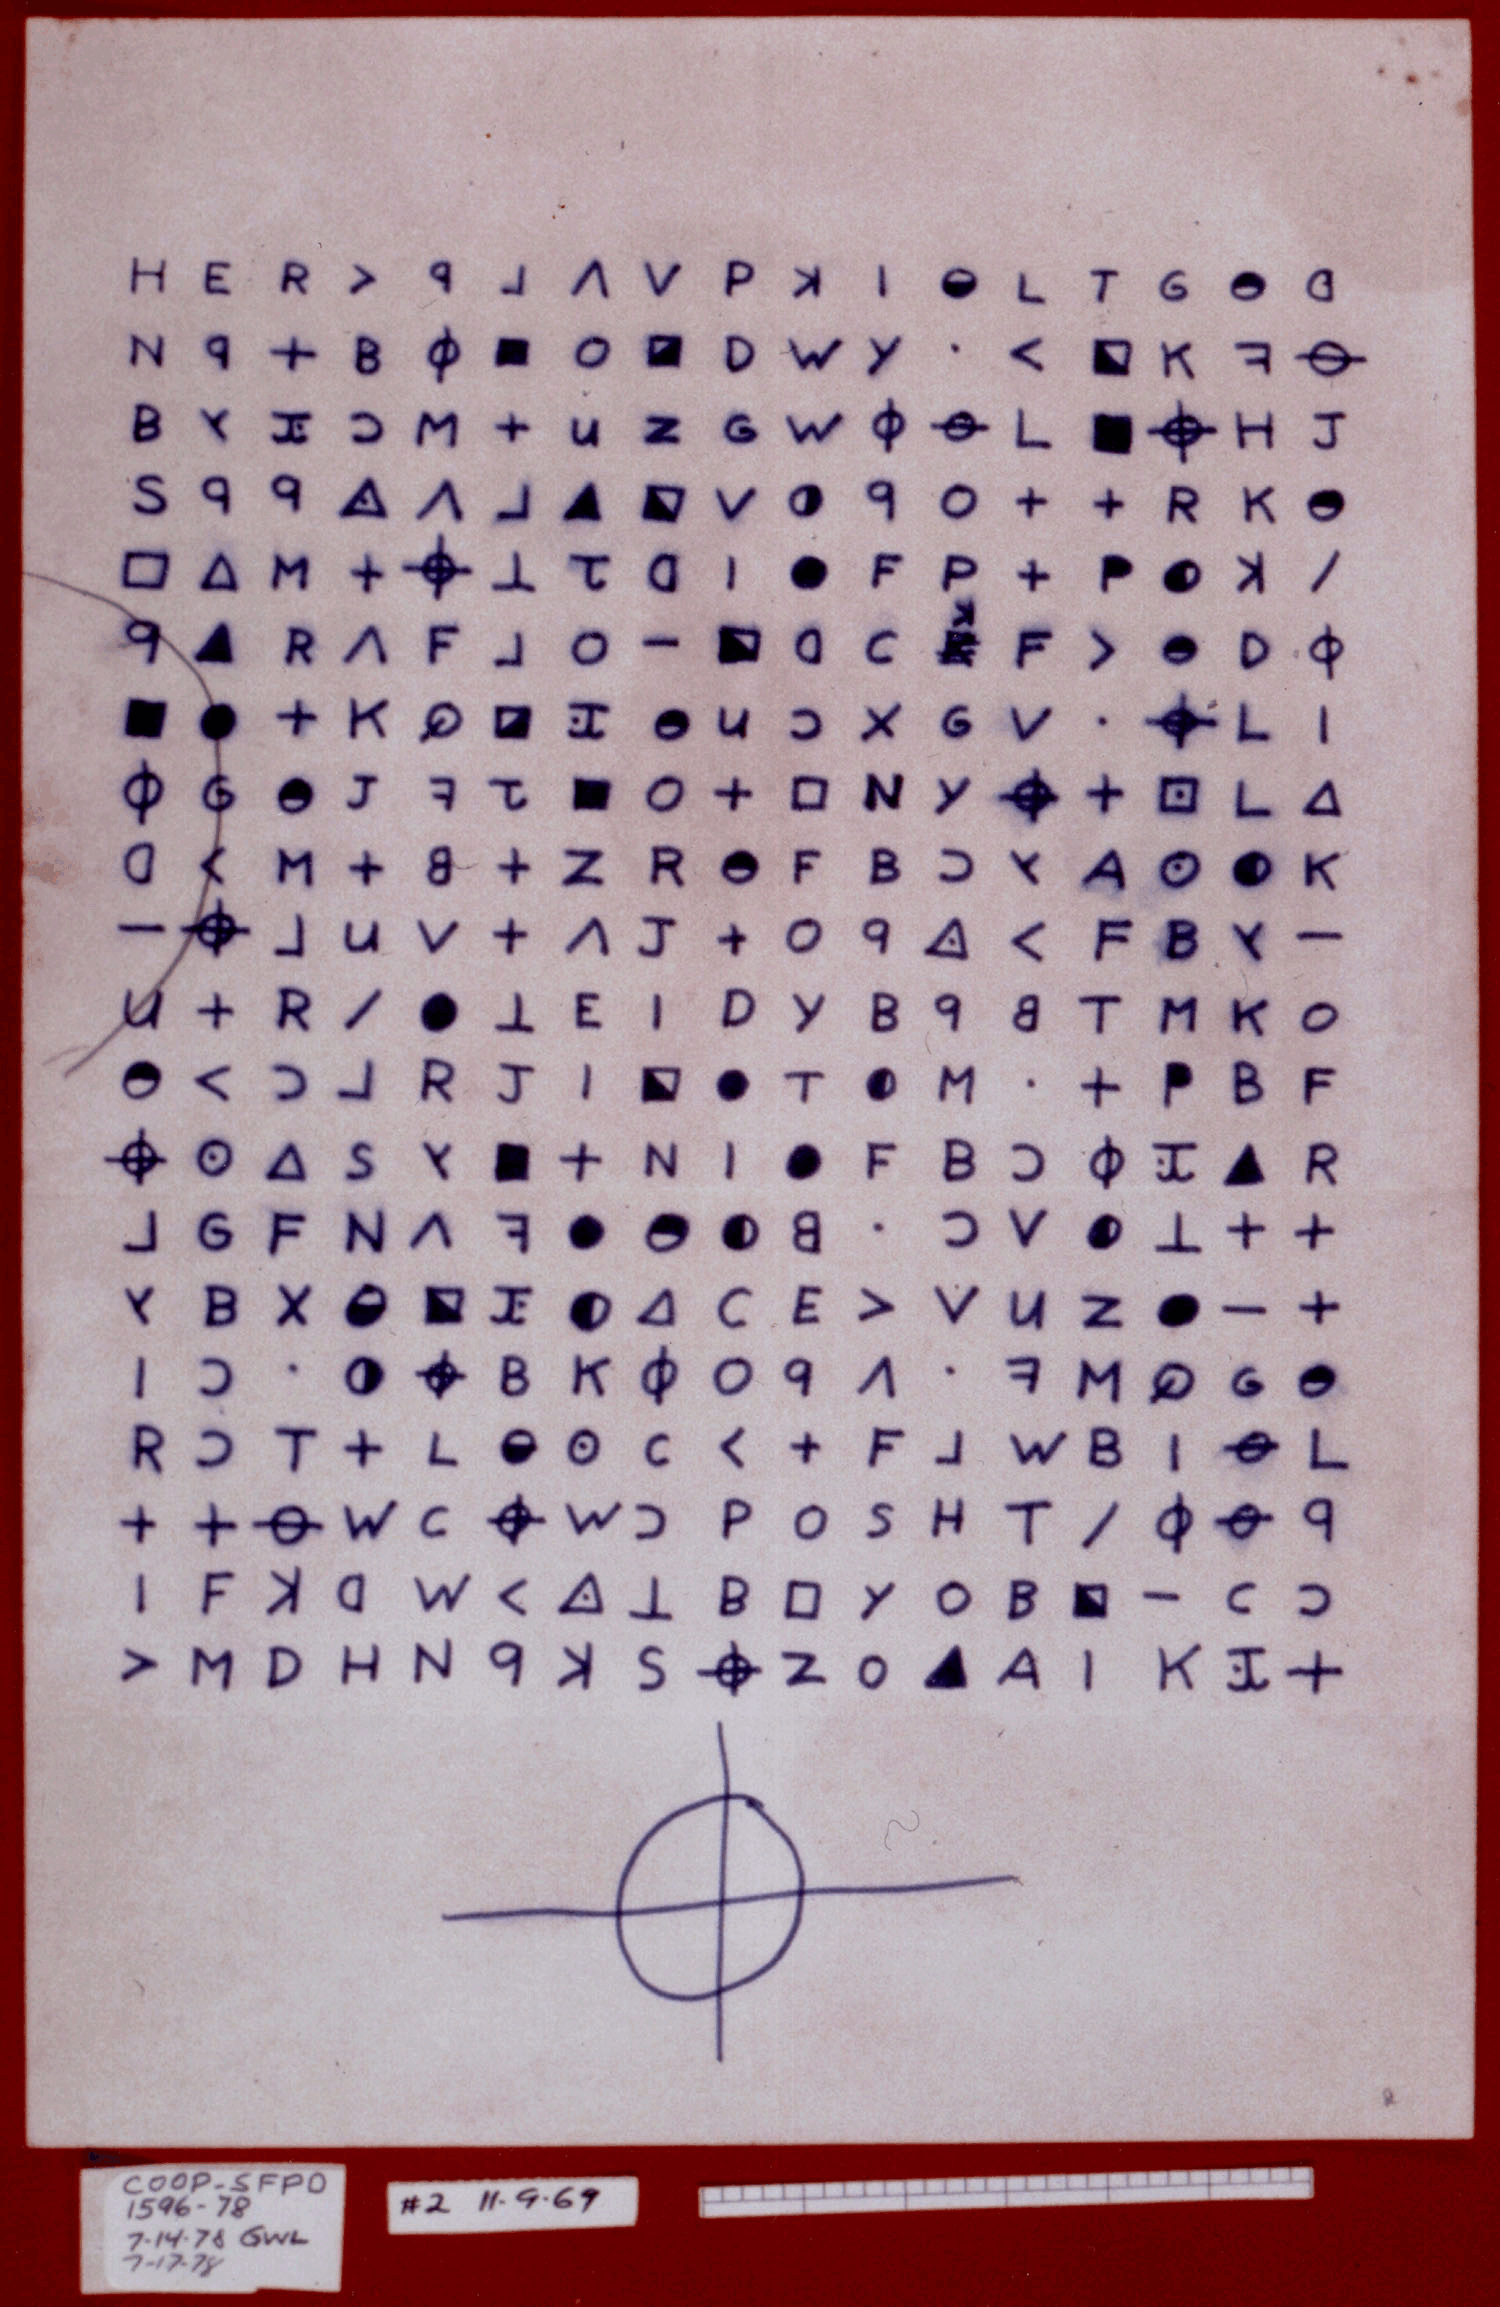 H E R > ꟼ ⅃ Λ V P ꓘ I ◒ L T G ◒ ᗡ
N ꟼ + B ϕ ■ O ◪ D W Y · < ⬕ K ꟻ ⊖
B ⅄ Ɪ Ɔ M + u Z G W ϕ ⊖ L ■ ⌖ H J
S ꟼ ꟼ ◬ Λ ⅃ ▲ ⬕ V ◑ ꟼ O + + R K ◒
□ △ M + ⌖ ⊥ τ ᗡ I ● F P + P ◐ ꓘ /
ꟼ ▲ R Λ F ⅃ O – ⬕ ᗡ C ꓘ F > ◒ D ϕ
■ ● + K ∅ ◪ Ɪ ◒ u Ɔ X G V · ⌖ L I
ϕ G ◒ J ꟻ τ ■ O + □ N Y ⌖ + ⊡ L △
ᗡ < M + 8 + Z R ◒ F B Ɔ ⅄ A ⊙ ◐ K
– ⌖ ⅃ u V + Λ J + O ꟼ ◬ < F B ⅄ –
u + R / ● ⊥ E I D Y B ꟼ 8 T M K O
◒ < Ɔ ⅃ R J I ⬕ ● T ◐ M · + P B F
⌖ ⊙ △ S ⅄ ■ + N I ● F B Ɔ ϕ Ɪ ▲ R
⅃ G F N Λ ꟻ ● ◒ ◐ 8 · Ɔ V ◐ ⊥ + +
⅄ B X ◒ ⬕ Ɪ ◐ △ C E > V u Z ● – +
I Ɔ · ◑ ⌖ B K ϕ O ꟼ Λ · ꟻ M ∅ G ◒
R Ɔ T + L ◒ ⊙ C < + F ⅃ W B I ⊖ L
+ + ⊖ W C ⌖ W Ɔ P O S H T / ϕ ⊖ ꟼ
I F ꓘ ᗡ W < ◬ ⊥ B □ Y O B ⬕ – C Ɔ
> M D H N ꟼ ꓘ S ⌖ Z O ▲ A I K Ɪ +
COOP-SFPD
1596-78
7-14-78 GWL
7-17-78
#2 11-9-69